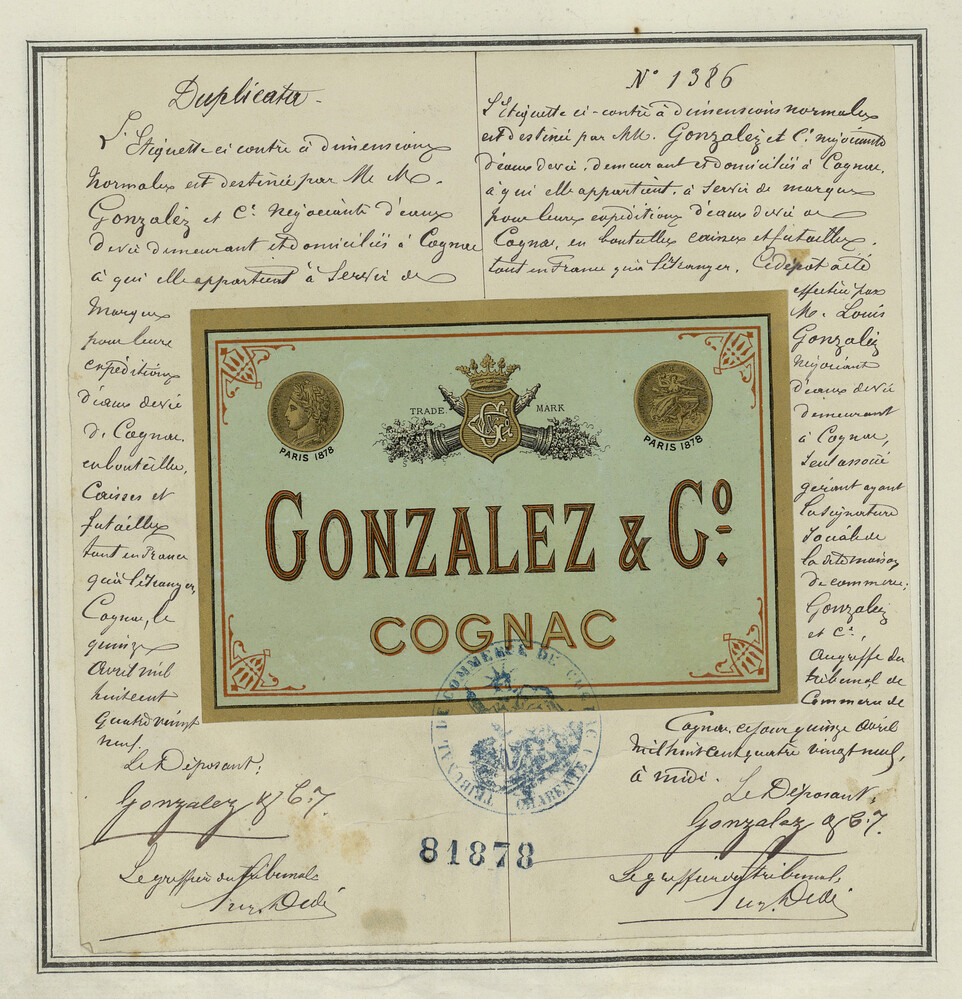 Duplicata
L'Etiquette ci contre à dimensions
normales est destinée par M. M.
Gonzalèz et Cie Négociants d'eaux
de vie demeurant et domiciliés à Cognac
à qui elle appartient à Servir de
marques
pour leurs
expéditions
d'eaux de vie
de Cognac
en bouteilles,
Caisses et
futailles
tant en France
qu'à l'étranger,
Cognac, le
quinze
Avril mil
huit cent
quatre vingt
neuf.
Le Déposant:
Gonzalez & C.
Le greffier du tribunal
N° 1386
L'Etiquette ci-contre à dimensions normales
est destinée par MM. Gonzalèz et Cie négociants
d'eaux de vie, demeurant et domiciliés à Cognac,
à qui elle appartient, à Servir de marques
pour leurs expéditions d'eaux de vie de
Cognac, en bouteilles caisses et futailles,
tant en France qu'à l'étranger. Ce dépôt a été
effectué par
M. Louis
Gonzalèz
Négociant
d'eaux de vie
demeurant
à Cognac,
seul associé
gérant ayant
la signature
Sociale de
la dite maison
de commerce;
Gonzalèz
et Cie,
Au greffe du
tribunal de
Commerce de
Cognac, ce jour quinze avril
mil huit cent quatre vingt neuf,
à midi.
Le Déposant:
Gonzalez & C.
Le greffier du tribunal,
TRADE MARK
GCo
PARIS 1878
PARIS 1878
GONZALEZ & Co
COGNAC
TRIBUNAL DE COMMERCE DE COGNAC (CHARENTE)
81878